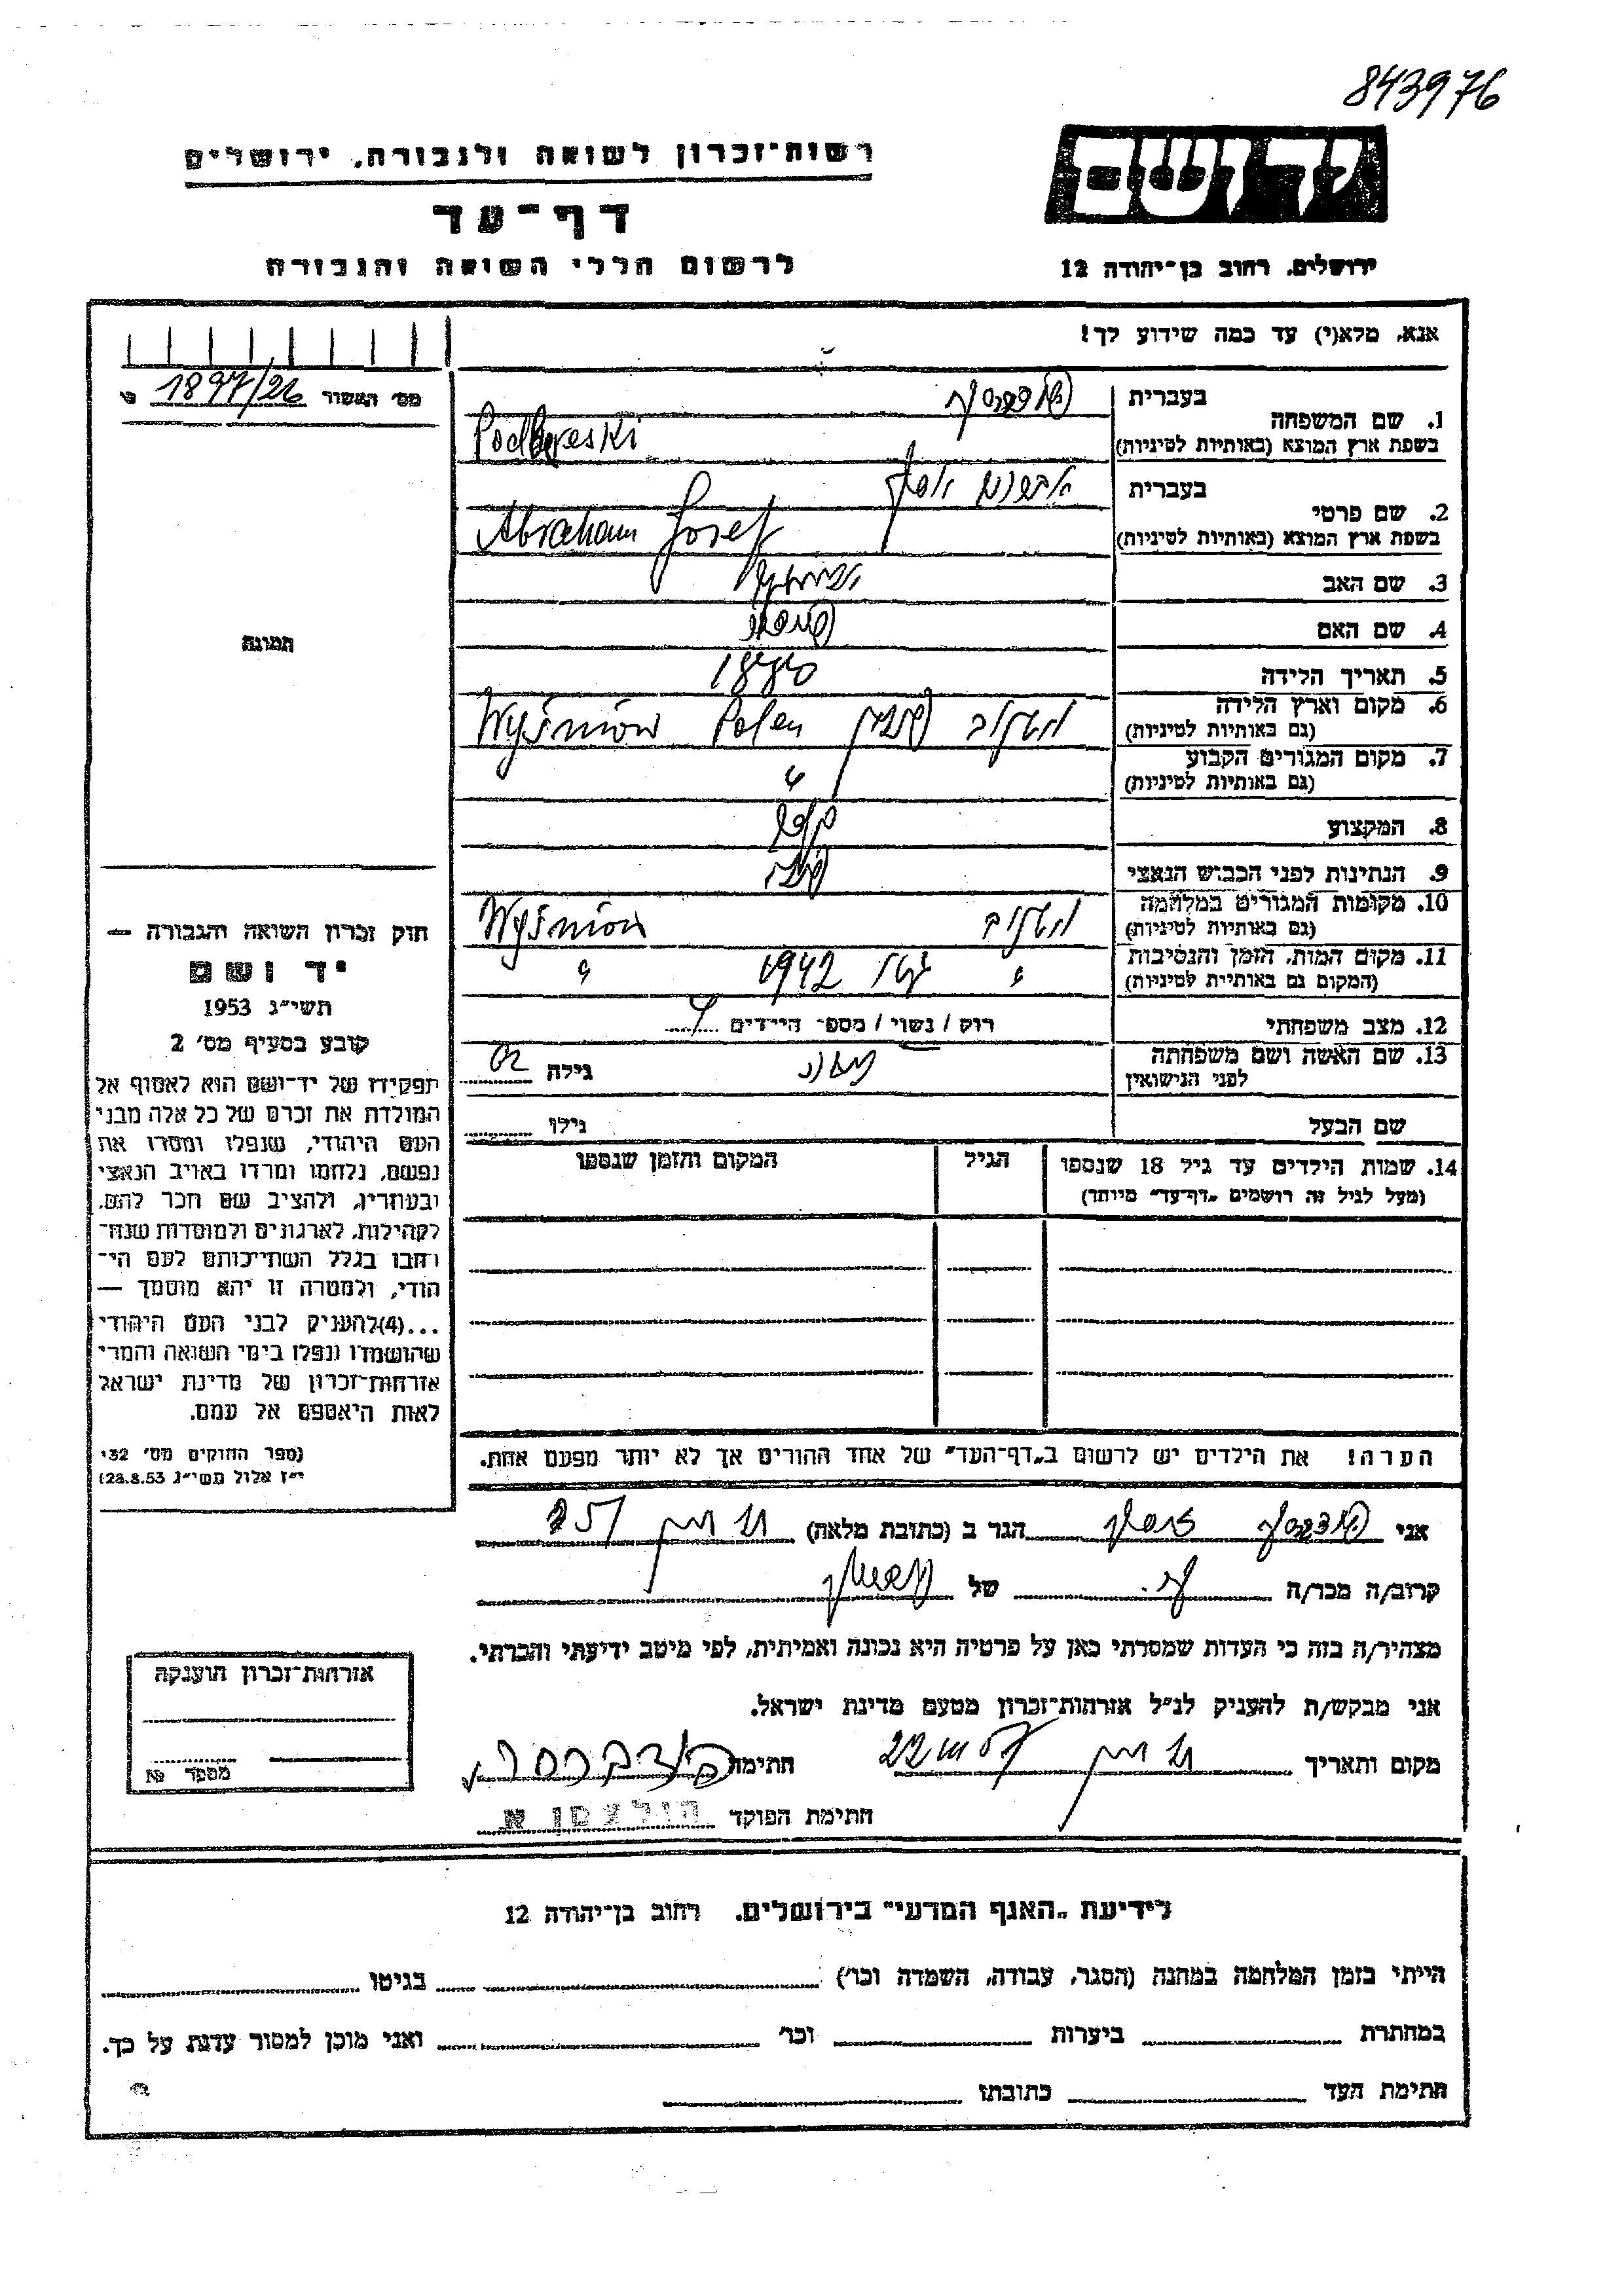 843976
יד ושם
רשות־זכרון לשואה ולגבורה, ירושלים
דף־עד
לרשום חללי השואה והגבורה
ירושלים, רחוב בן־יהודה 12
אנא, מלא(י) עד כמה שידוע לך!
מס' האשור 1897/26
1. שם המשפחה
בעברית
בשפת ארץ המוצא (באותיות לטיניות) Podbereski
2. שם פרטי
בעברית אברהם יוסף
בשפת ארץ המוצא (באותיות לטיניות) Abraham Josef
3. שם האב
4. שם האם
5. תאריך הלידה 1880
6. מקום וארץ הלידה
(גם באותיות לטיניות) פולין Polen Wyśniów
7. מקום המגורים הקבוע
(גם באותיות לטיניות) "
8. המקצוע
9. הנתינות לפני הכבוש הנאצי
10. מקומות המגורים במלחמה
(גם באותיות לטיניות) Wyśniów
11. מקום המות, הזמן והנסיבות
(המקום גם באותיות לטיניות) " 1942 "
12. מצב משפחתי רווק / נשוי / מספר הילדים 4
13. שם האשה ושם משפחתה
לפני הנישואין גילה
שם הבעל גילו
14. שמות הילדים עד גיל 18 שנספו
(מעל לגיל זה רושמים „דף־עד" מיוחד)
הגיל
המקום והזמן שנספו
הערה! את הילדים יש לרשום ב„דף־העד" של אחד ההורים אך לא יותר מפעם אחת.
תמונה
חוק זכרון השואה והגבורה —
יד ושם
תשי"ג 1953
קובע בסעיף מס' 2
תפקידו של יד־ושם הוא לאסוף אל
המולדת את זכרם של כל אלה מבני
העם היהודי, שנפלו ומסרו את
נפשם, נלחמו ומרדו באויב הנאצי
ובעוזריו, ולהציב שם וזכר להם,
לקהילות, לארגונים ולמוסדות שנח־
רבו בגלל השתייכותם לעם הי־
הודי, ולמטרה זו יהא מוסמך —
...(4)להעניק לבני העם היהודי
שהושמדו ונפלו בימי השואה והמרי
אזרחות־זכרון של מדינת ישראל
לאות היאספם אל עמם.
(ספר החוקים מס' 132
י"ז אלול תשי"ג 28.8.53)
אני הגר ב (כתובת מלאה)
קרוב/ה מכר/ה של
מצהיר/ה בזה כי העדות שמסרתי כאן על פרטיה היא נכונה ואמיתית, לפי מיטב ידיעתי והכרתי.
אני מבקש/ת להעניק לנ"ל אזרחות־זכרון מטעם מדינת ישראל.
מקום ותאריך חתימה
חתימת הפוקד
אזרחות־זכרון הוענקה
מספר №
לידיעת „האגף המדעי" בירושלים, רחוב בן־יהודה 12
הייתי בזמן המלחמה במחנה (הסגר, עבודה, השמדה וכו') בגיטו
במחתרת ביערות וכו' ואני מוכן למסור עדות על כך.
חתימת העד כתובתו